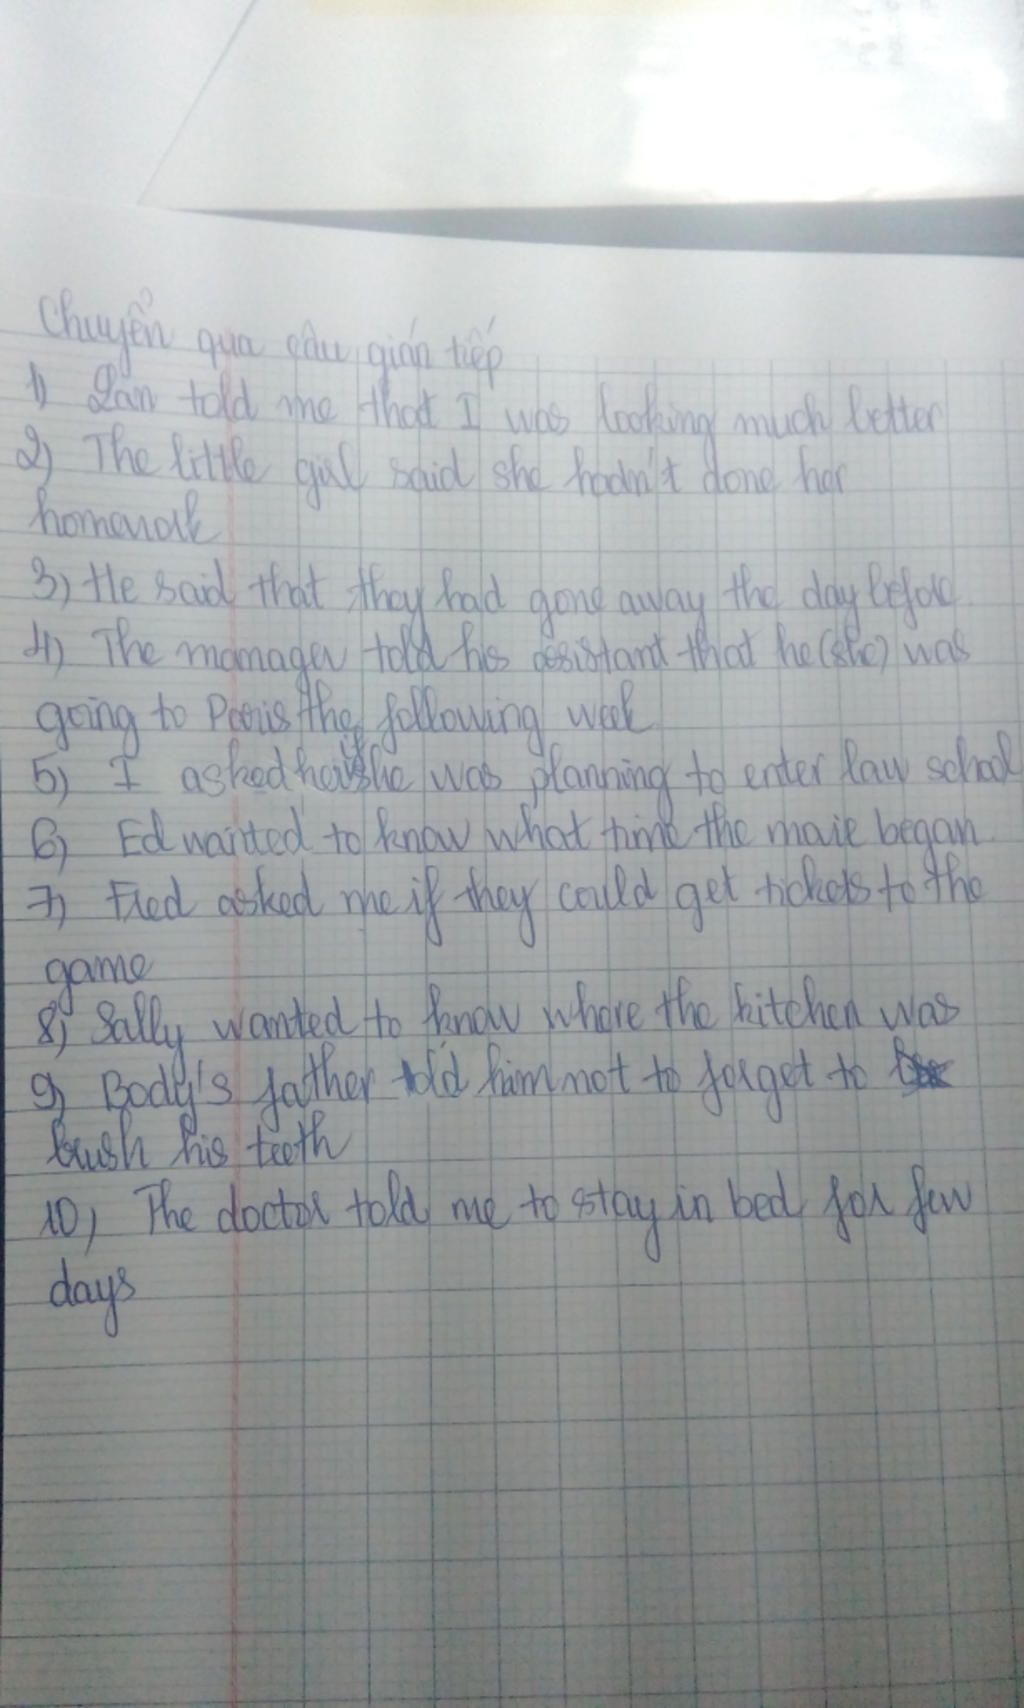 Chuyển qua câu gián tiếp
1) Lan told me that I was looking much better
2) The little girl said she hadn't done her
homework
3) He said that they had gone away the day before
4) The manager told his assistant that he (she) was
going to Paris the following week
5) I asked her if she was planning to enter law school
6) Ed wanted to know what time the movie began
7) Fred asked me if they could get tickets to the
game
8) Sally wanted to know where the kitchen was
9) Body's father told him not to forget to
brush his teeth
10) The doctor told me to stay in bed for few
days